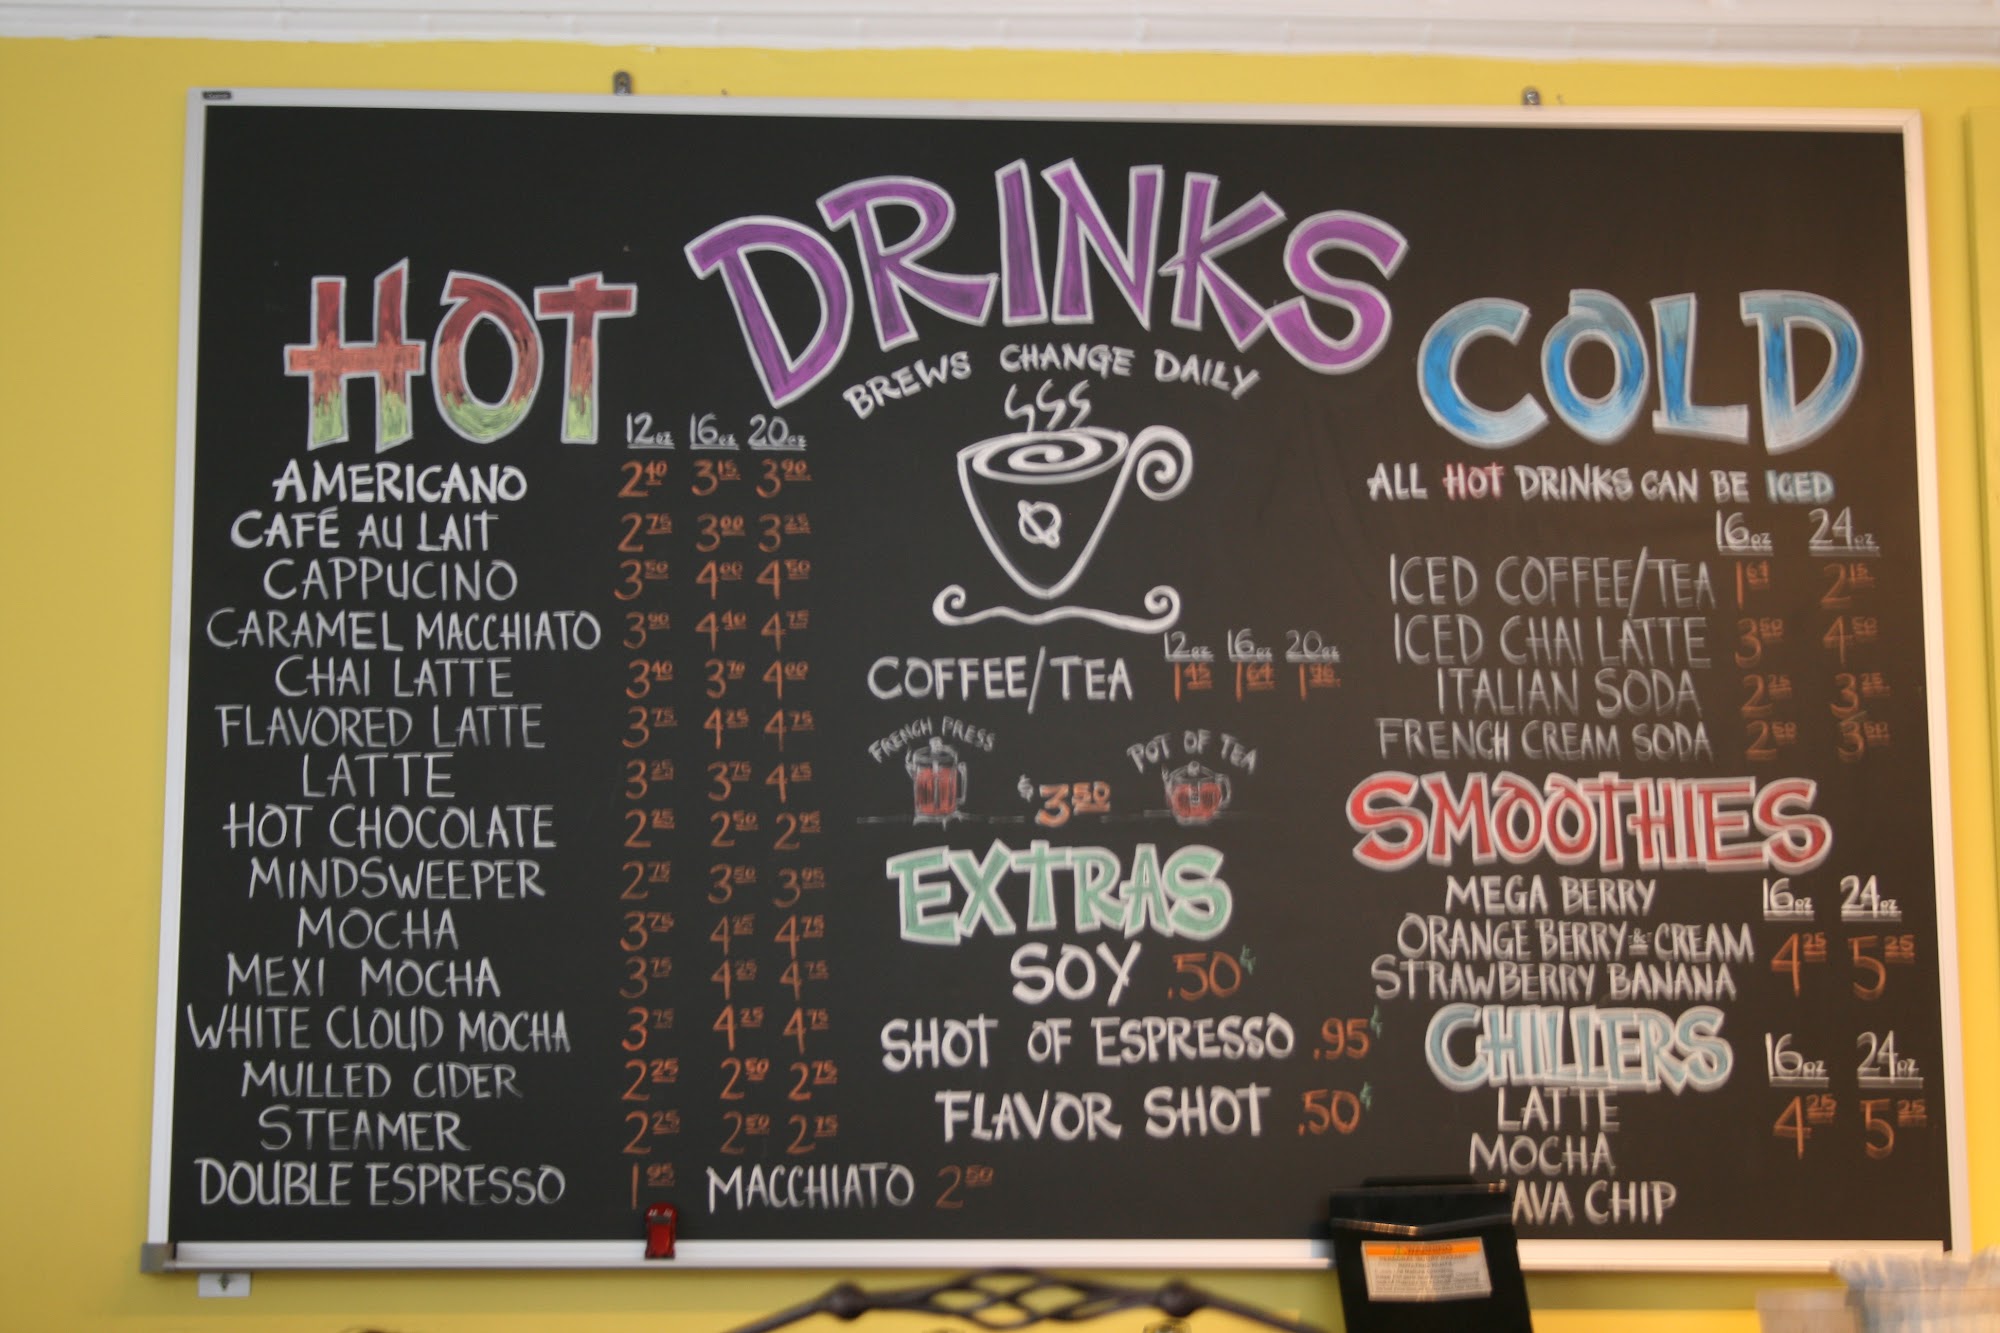 DRINKS
BREWS CHANGE DAILY
HOT
12oz 16oz 20oz
AMERICANO 2.40 3.15 3.90
CAFÉ AU LAIT 2.75 3.00 3.25
CAPPUCINO 3.50 4.00 4.50
CARAMEL MACCHIATO 3.90 4.40 4.75
CHAI LATTE 3.40 3.70 4.00
FLAVORED LATTE 3.75 4.25 4.75
LATTE 3.25 3.75 4.25
HOT CHOCOLATE 2.25 2.50 2.95
MINDSWEEPER 2.75 3.50 3.95
MOCHA 3.75 4.25 4.75
MEXI MOCHA 3.75 4.25 4.75
WHITE CLOUD MOCHA 3.75 4.25 4.75
MULLED CIDER 2.25 2.50 2.75
STEAMER 2.25 2.50 2.75
DOUBLE ESPRESSO 1.95 MACCHIATO 2.50
12oz 16oz 20oz
COFFEE/TEA 1.45 1.64 1.96
FRENCH PRESS POT OF TEA
$3.50
EXTRAS
SOY .50¢
SHOT OF ESPRESSO .95¢
FLAVOR SHOT .50¢
COLD
ALL HOT DRINKS CAN BE ICED
16oz 24oz
ICED COFFEE/TEA 1.64 2.15
ICED CHAI LATTE 3.50 4.50
ITALIAN SODA 2.25 3.25
FRENCH CREAM SODA 2.50 3.50
SMOOTHIES
MEGA BERRY 16oz 24oz
ORANGE BERRY & CREAM 4.25 5.25
STRAWBERRY BANANA
CHILLERS
16oz 24oz
LATTE 4.25 5.25
MOCHA
AVA CHIP
WARNING